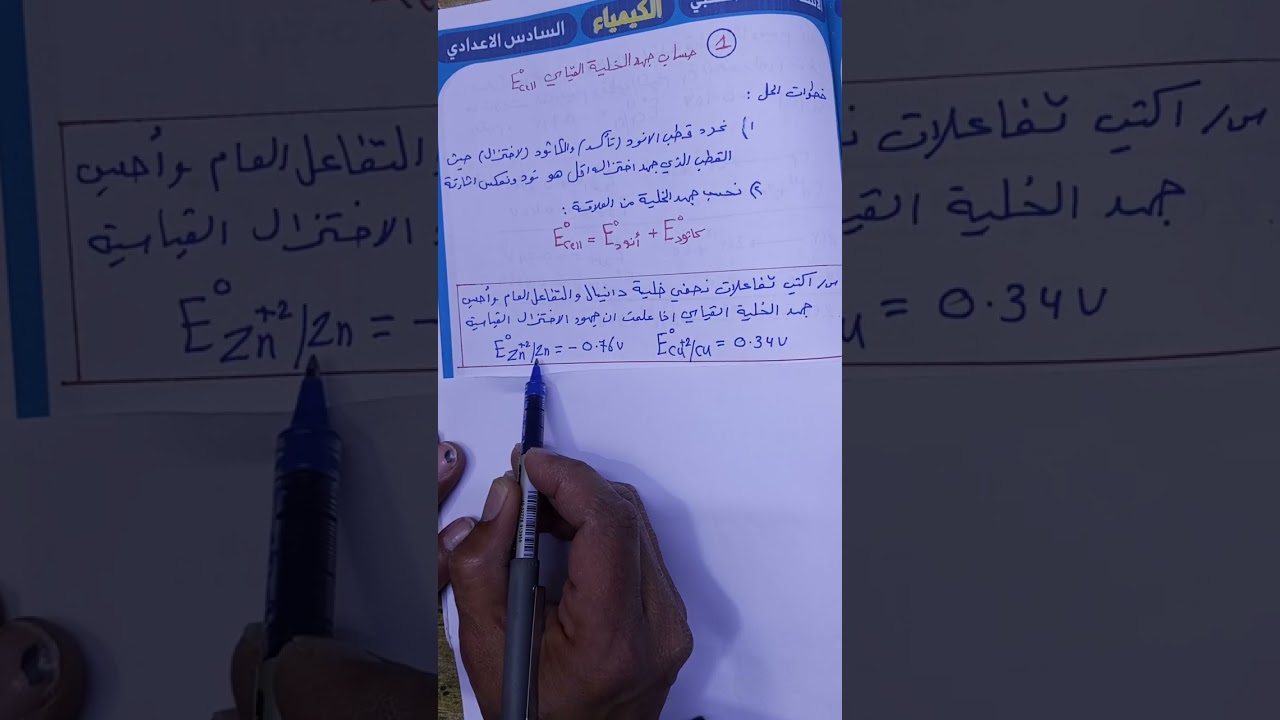 الكيمياء السادس الاعدادي
1 حساب جهد الخلية القياسي E°cell
خطوات الحل :
١) نحدد قطب الانود (تأكسد) والكاثود (لاختزال) حيث
القطب الذي جهد اختزاله اقل هو نود ونعكس اشارتة
٢) نحسب جهد الخلية من العلاقة :
E°cell = E°أنود + E°كاثود
س/ اكتب تفاعلات نصفي خلية دانيال والتفاعل العام وأحسب
جهد الخلية القياسي اذا علمت ان جهود الاختزال القياسية
E°Zn+2/Zn = - 0.76V E°Cu+2/Cu = 0.34V